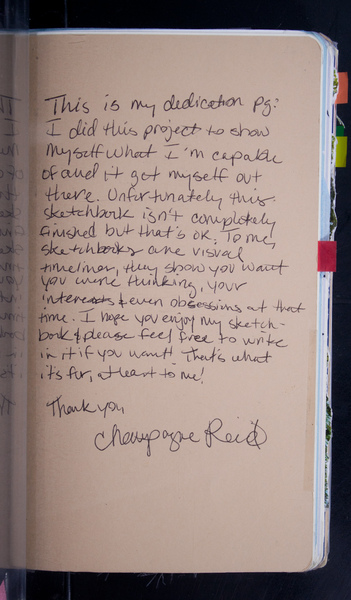 This is my dedication pg:
I did this project to show
myself what I'm capable
of and it got myself out
there. Unfortunately this
sketchbook isn't completely
finished but that's ok. To me,
sketchbooks are visual
timelines, they show you want
you were thinking, your
interests & even obsessions at that
time. I hope you enjoy my sketch-
book & please feel free to write
in it if you want! That's what
it's for, at least to me!
Thank you,
Champagne Reid